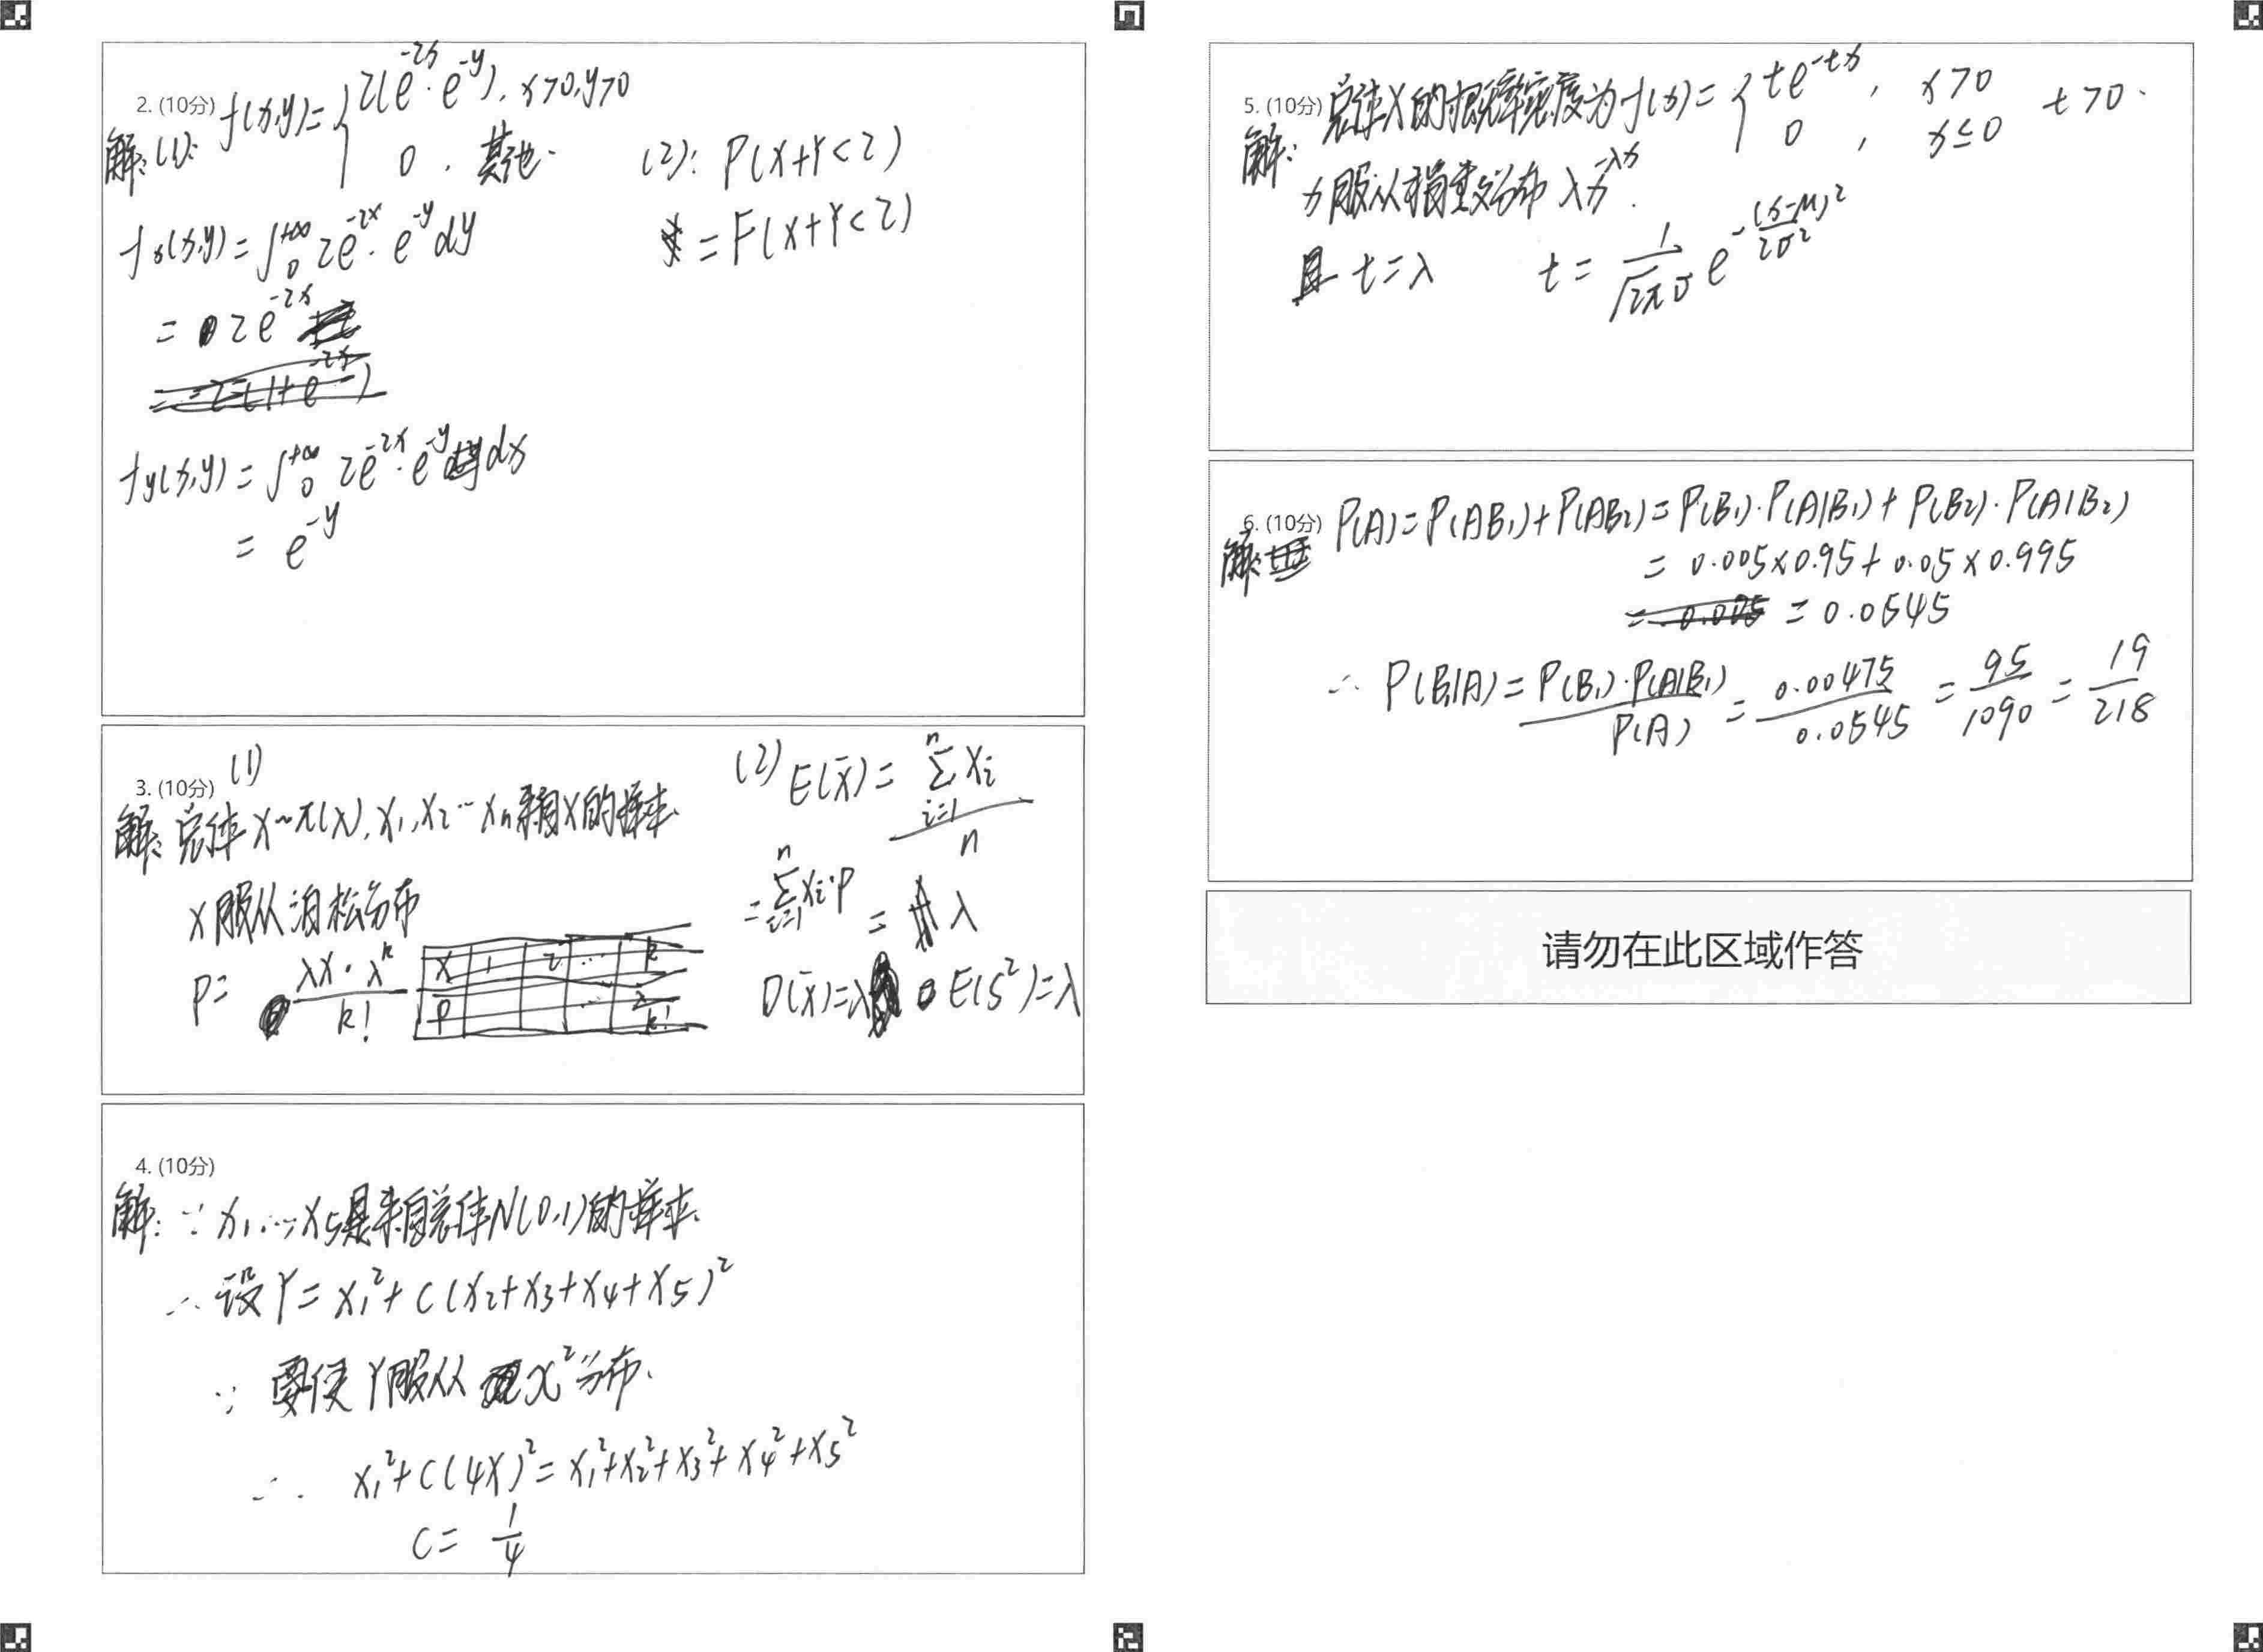 2. (10分) f(x,y)={2(e^{-2x}·e^{-y}), x>0,y>0
0, 其他.
解:(1):
f_x(x,y)=∫_0^{+∞} 2e^{-2x}·e^{-y}dy
=2e^{-2x}
f_y(x,y)=∫_0^{+∞} 2e^{-2x}·e^{-y}dx
=e^{-y}
(2): P(X+Y<2)
=F(X+Y<2)
3. (10分) (1)
解:总体X~π(λ),X_1,X_2…X_n来自X的样本.
X服从泊松分布
P= λX·λ^k/k!
(2) E(X̄)= Σ_{i=1}^{n} X_i / n
=Σ_{i=1}^{n} X_i·P = λ
D(X̄)=λ E(S²)=λ
4. (10分)
解:∵x_1,…,X_5是来自总体N(0,1)的样本.
∴设Y=X_1²+C(X_2+X_3+X_4+X_5)²
∵要使Y服从χ²分布.
∴ X_1²+C(4X)²=X_1²+X_2²+X_3²+X_4²+X_5²
C= 1/4
5. (10分) 总体X的概率密度为f(x)={te^{-tx}, x>0
0, x≤0 t>0.
解:
x服从指数分布 λx^{-λx}.
且 t=λ t= 1/(√2π σ) e^{-(x-μ)²/2σ²}
6. (10分) P(A)=P(AB_1)+P(AB_2)=P(B_1)·P(A|B_1)+P(B_2)·P(A|B_2)
解:
=0.005×0.95+0.05×0.995
=0.0545
∴ P(B_1|A)= P(B_1)·P(A|B_1)/P(A) = 0.00475/0.0545 = 95/1090 = 19/218
请勿在此区域作答